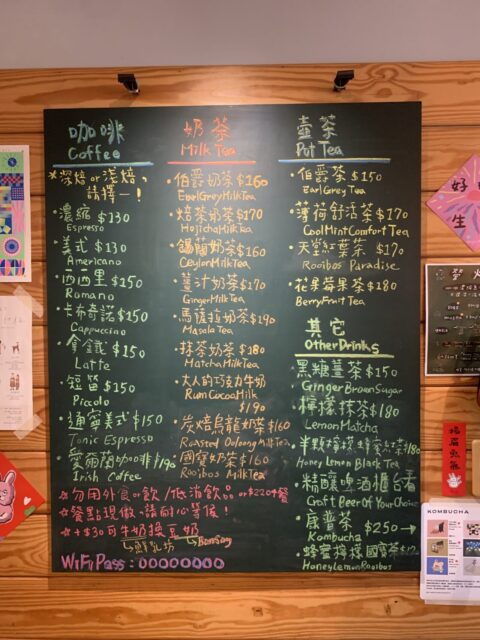 咖啡
Coffee
※深焙or淺焙,
請擇一!
・濃縮 $130
Espresso
・美式 $130
Americano
・西西里 $150
Romano
・卡布奇諾$150
Cappuccino
・拿鐵 $150
Latte
・短笛 $150
Piccolo
・通寧美式$150
Tonic Espresso
・愛爾蘭咖啡$190
Irish Coffee
奶茶
Milk Tea
・伯爵奶茶$160
EarlGreyMilkTea
・焙茶奶茶$170
HojichaMilkTea
・錫蘭奶茶$160
CeylonMilkTea
・薑汁奶茶$170
GingerMilkTea
・馬薩拉奶茶$190
Masala Tea
・抹茶奶茶$180
MatchaMilkTea
・大人的巧克力牛奶
RumCocoaMilk
$190
・炭焙烏龍奶茶$160
Roasted Oolong MilkTea
・國寶奶茶$160
Rooibos MilkTea
壺茶
Pot Tea
・伯爵茶$150
EarlGreyTea
・薄荷舒活茶$170
CoolMintComfort Tea
・天堂紅葉茶 $170
Rooibos Paradise
・花果莓果茶$180
BerryFruitTea
其它
OtherDrinks
・黑糖薑茶$150
GringerBrownSugar
・檸檬抹茶$180
LemonMatcha
・半顆檸檬蜂蜜紅茶$180
Honey Lemon Black Tea
・精釀啤酒櫃台看
Craft Beer Of Your Choice
・康普茶 $250→
Kombucha
・蜂蜜檸檬國寶茶
HoneyLemonRooibos
※勿用外食or飲/低消飲 or $2204餐
※餐點現做、請耐心等候!
※+$30可牛奶換豆奶
↳鮮乳坊
↳Bonsoy
WiFi Pass: 00000000
好
生
KOMBUCHA